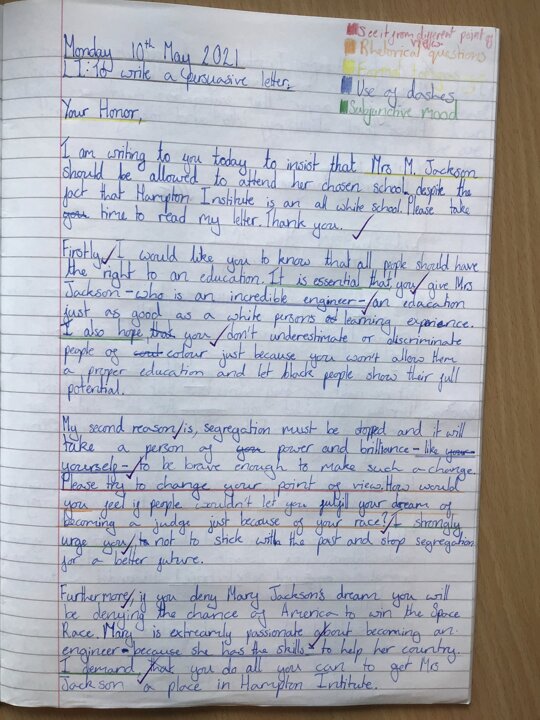 Monday 10th May 2021
LI: to write a persuasive letter.
See it from different point of views
Rhetorical questions
Formal
Use of dashes
Subjunctive mood
Your Honor,
I am writing to you today to insist that Mrs M. Jackson
should be allowed to attend her chosen school despite the
fact that Hampton Institute is an all white school. Please take
you time to read my letter. Thank you.
Firstly, I would like you to know that all people should have
the right to an education. It is essential that you give Mrs
Jackson - who is an incredible engineer - an education
just as good as a white persons of learning experience.
I also hope that you don't underestimate or discriminate
people of colour just because you won't allow them
a proper education and let black people show their full
potential.
My second reason is, segregation must be stopped and it will
take a person of you power and brilliance - like your
yourself - to be brave enough to make such a change.
Please try to change your point of view. How would
you feel if people wouldn't let you fulfil your dream of
becoming a judge just because of your race? I strongly
urge you to not to stick with the past and stop segregation
for a better future.
Furthermore, if you deny Mary Jackson's dream you will
be denying the chance of America to win the Space
Race. Mary is extreamly passionate about becoming an
engineer - because she has the skills - to help her country.
I demand that you do all you can to get Mrs
Jackson a place in Hampton Intitute.